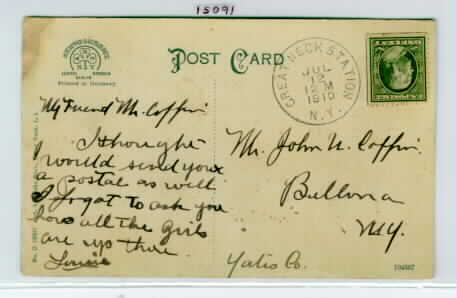 15091
POST CARD
Printed in Germany
GREAT NECK STATION
JUL
12
12 M
1910
N.Y.
My Friend Mr. Coffin
I thought
I would send you
a postal as well
I forgot to ask you
how all the girls
are up there
Louise
Mr. John N. Coffin
Bellona
N.Y.
Yates Co.
104507